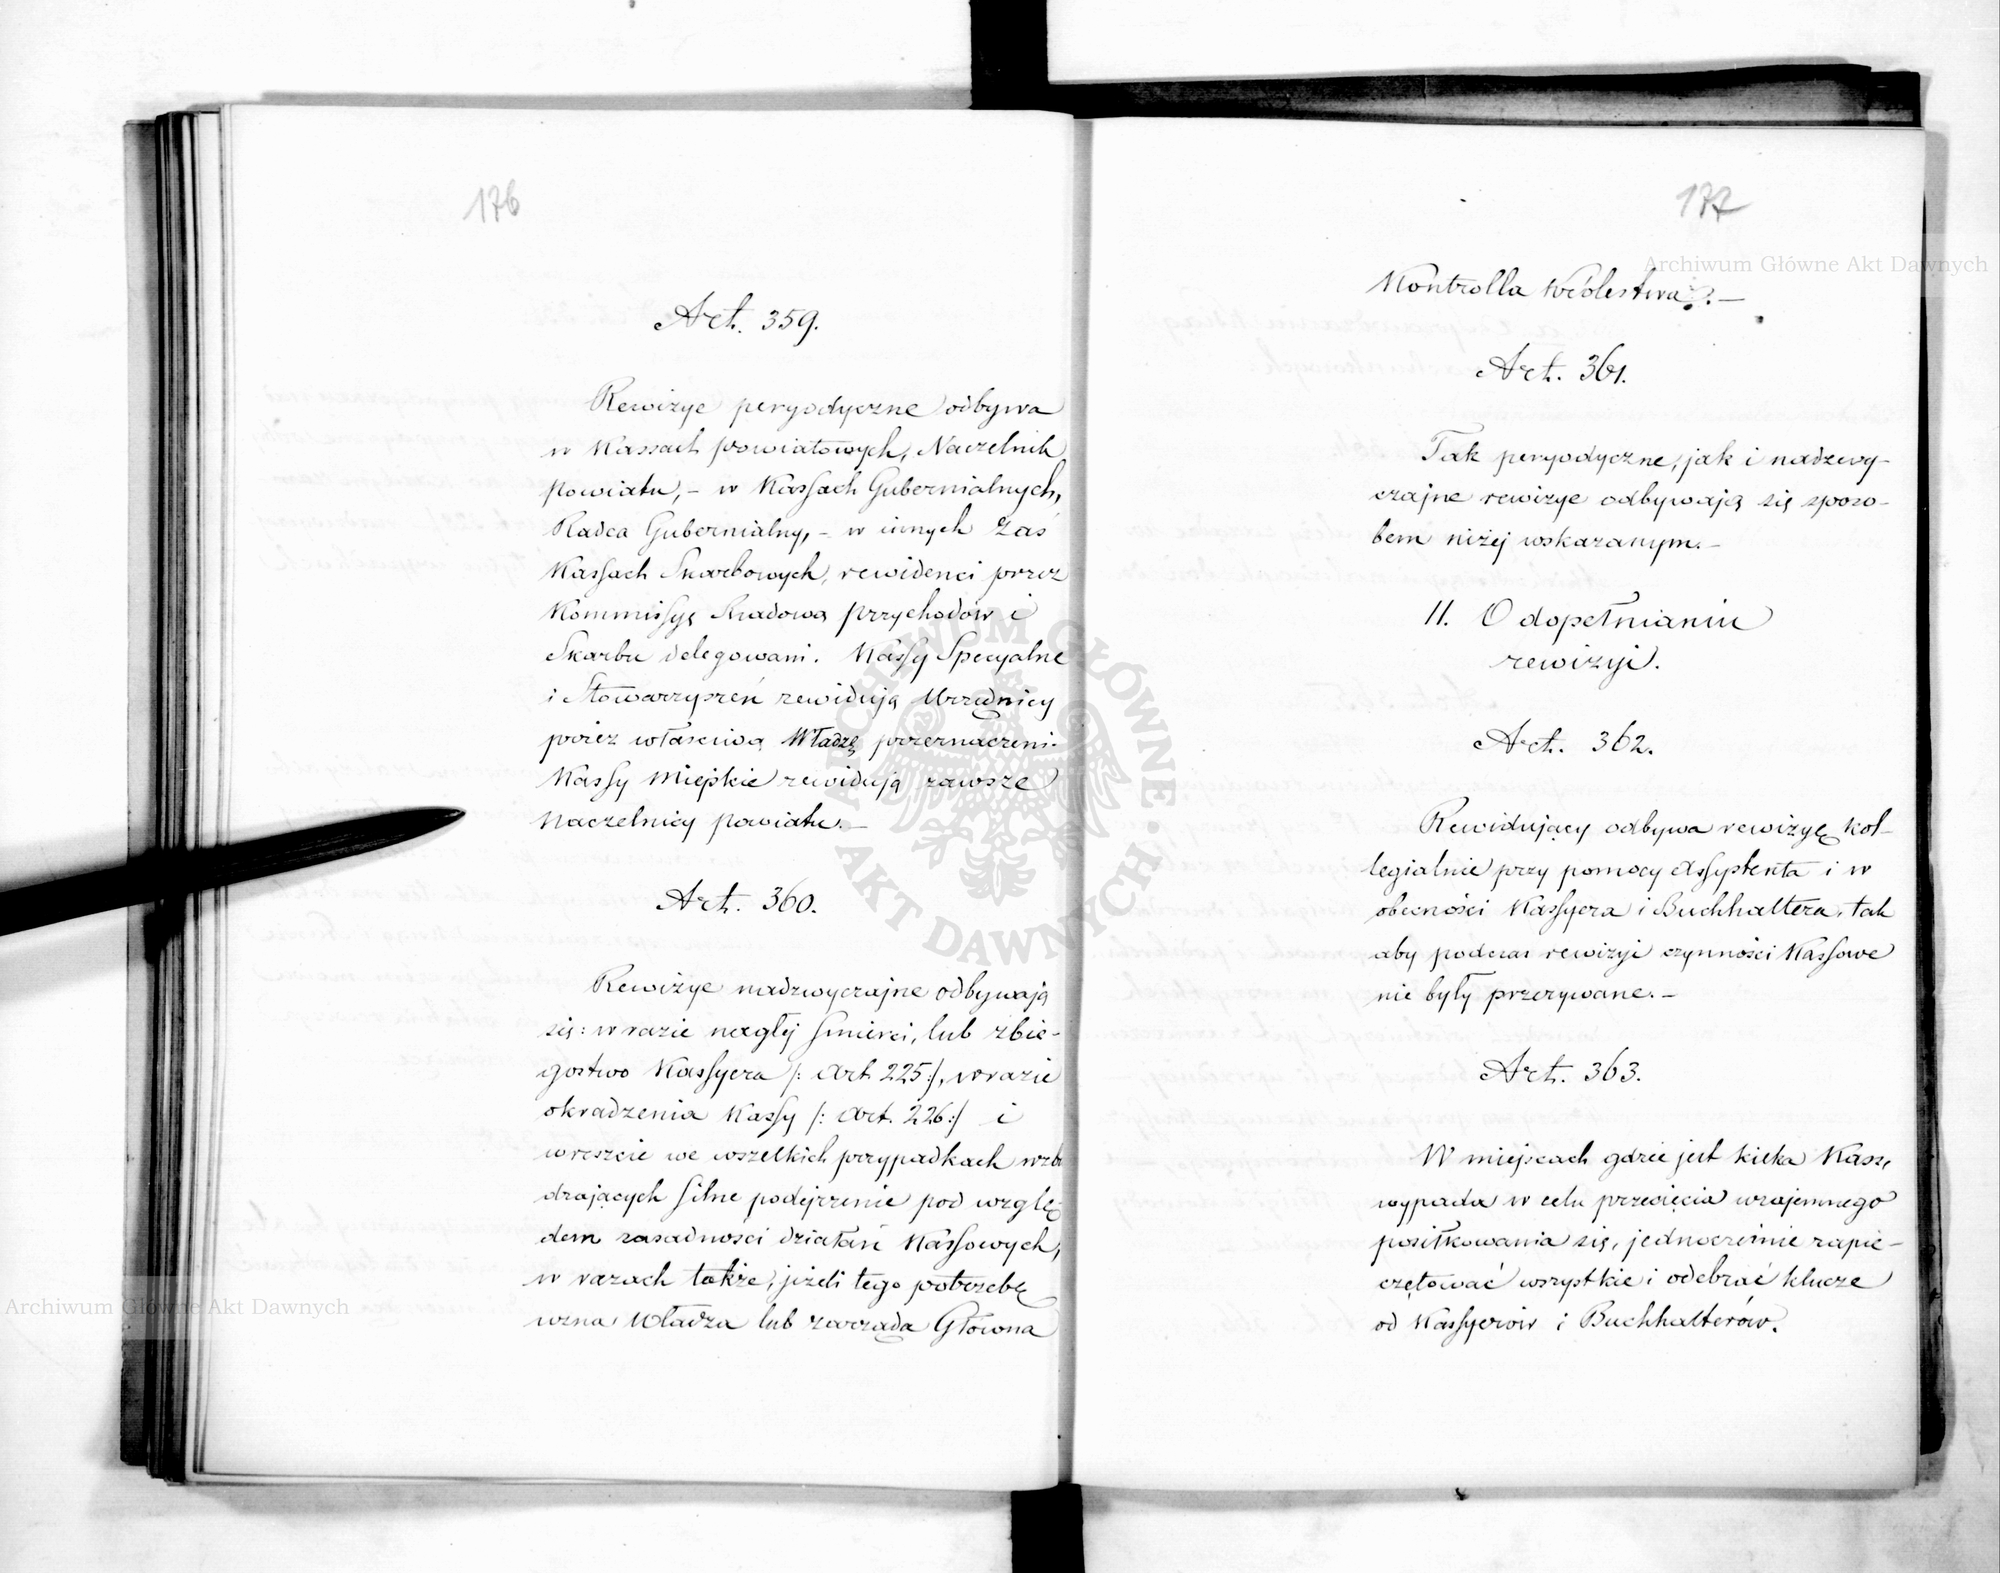 176
Art. 359.
Rewizye peryodyczne odbywa
w Kassach powiatowych, Naczelnik
powiatu, – w Kassach Gubernialnych,
Radca Gubernialny, – w innych zaś
Kassach Skarbowych, rewidenci przez
Kommissyę Rządową przychodów i
Skarbu delegowani. Kassy Specyalne
i Stowarzyszeń rewidują Urzędnicy
przez właściwą Władzę przeznaczeni.
Kassy Miejskie rewidują zawsze
Naczelnicy powiatu. –
Art. 360.
Rewizye nadzwyczajne odbywają
się: w razie nagłej śmierci, lub zbie-
gostwo Kassyera /: Art 225 :/, w razie
okradzenia Kassy /: Art. 226 :/ i
wreszcie we wszelkich przypadkach wzbu
dzających silne podejrzenie pod wzglę-
dem zasadności działań Kassowych,
w razach także, jeżeli tego potrzebę
uzna Władza lub zarząda Główna
177
Kontrolla Królestwa. –
Art. 361.
Tak peryodyczne, jak i nadzwy-
czajne rewizye odbywają się sposo-
bem niżej wskazanym. –
II. O dopełnianiu
rewizyi.
Art. 362.
Rewidujący odbywa rewizyę kol-
legialnie przy pomocy Assystenta i w
obecności Kassyera i Buchhaltera, tak
aby podczas rewizyi czynności Kassowe
nie były przerywane. –
Art. 363.
W miejscach gdzie jest kilka Kass,
wypada w celu przecięcia wzajemnego
posiłkowania się, jednocześnie zapie-
czętować wszystkie i odebrać klucze
od Kassyerów i Buchhalterów.
Archiwum Główne Akt Dawnych
Archiwum Główne Akt Dawnych
ARCHIWUM GŁÓWNE AKT DAWNYCH